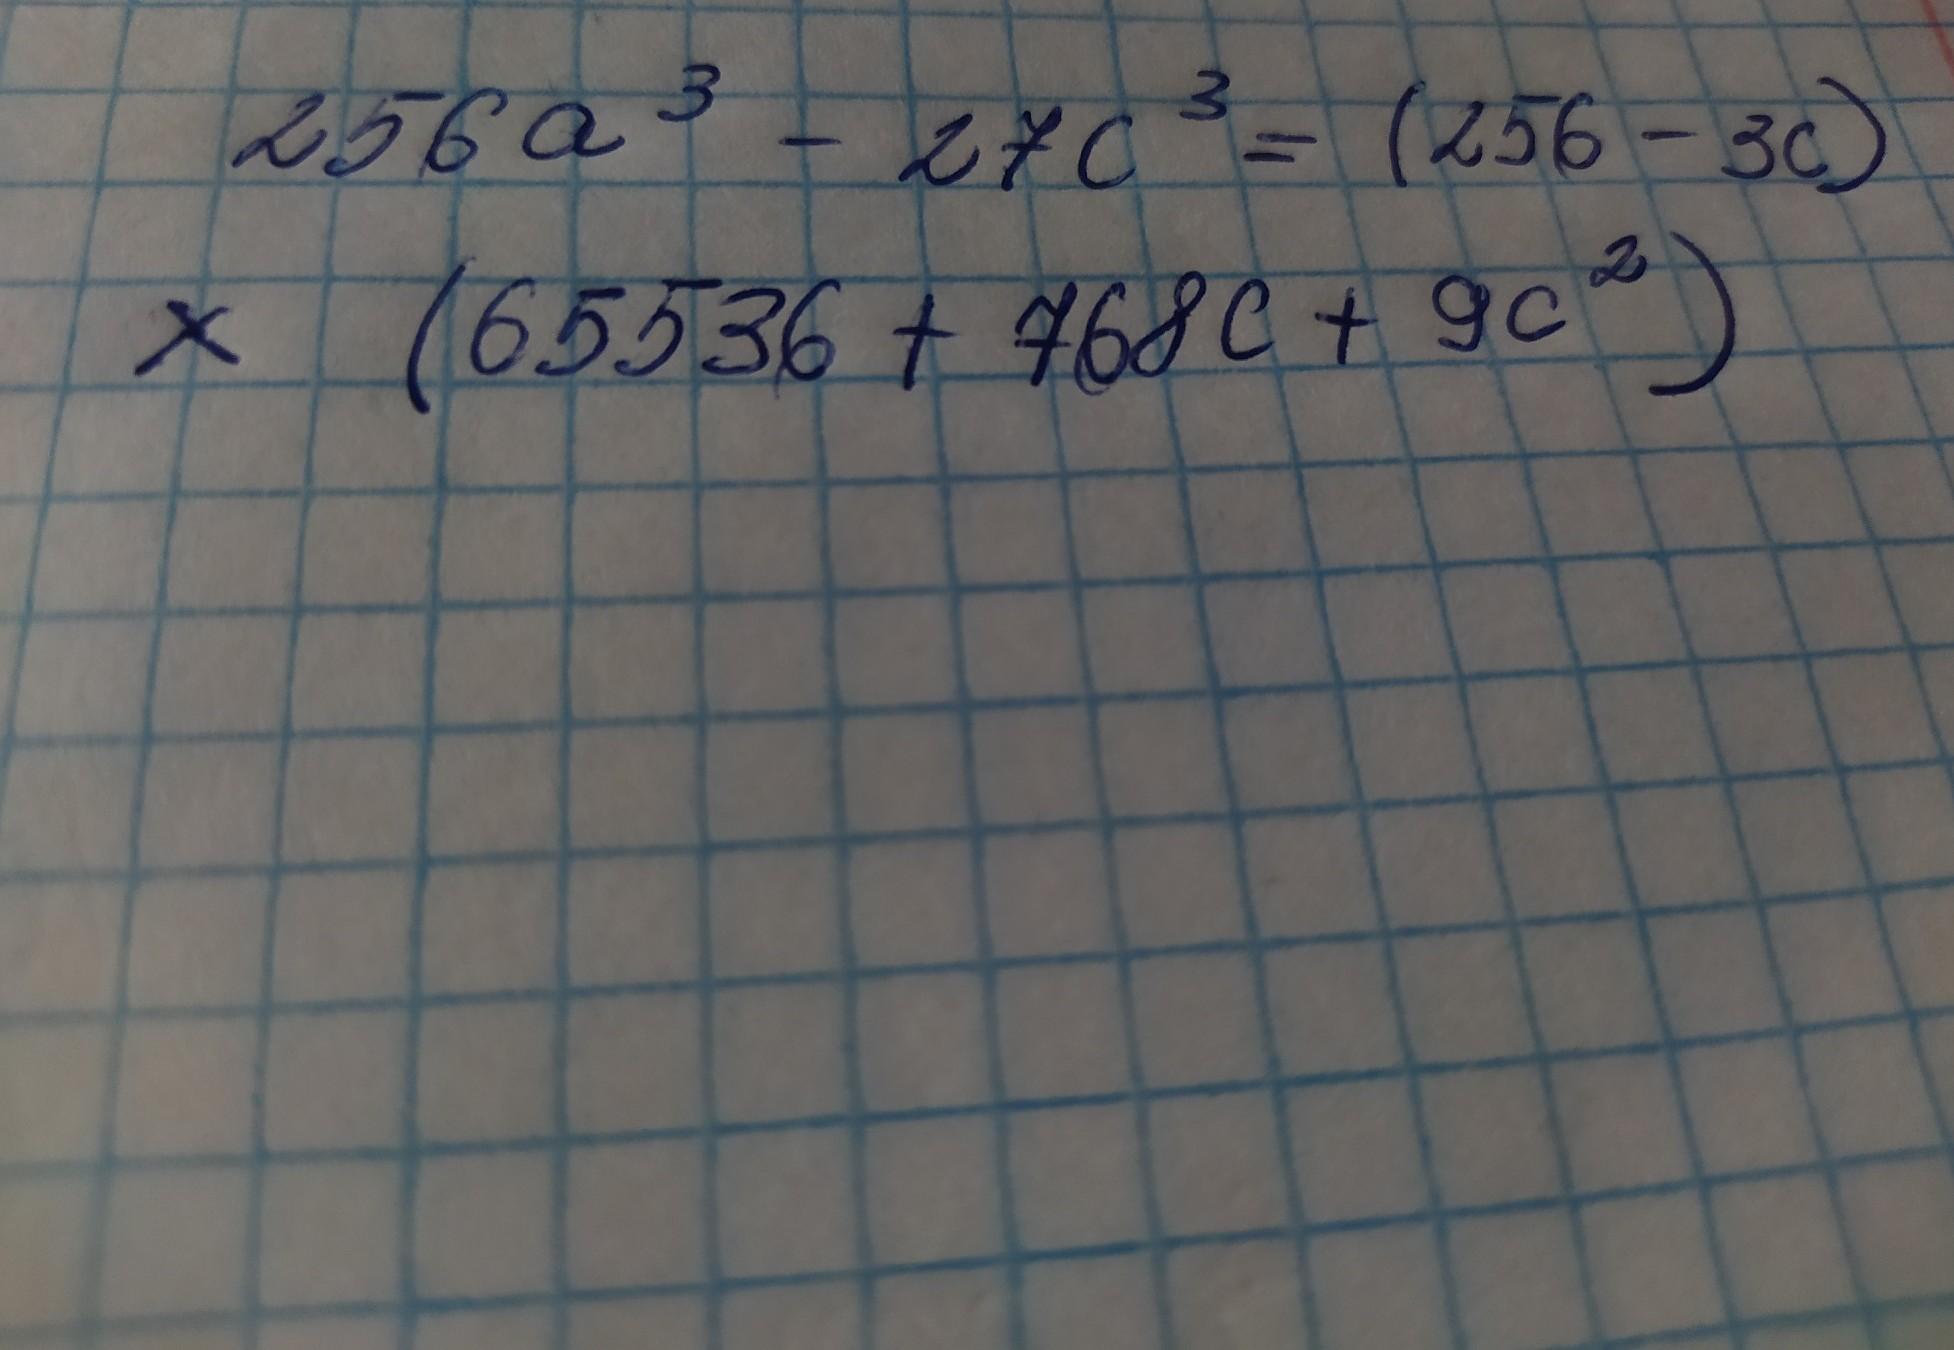 256a³ - 27c³ = (256 - 3c)
× (65536 + 768c + 9c²)